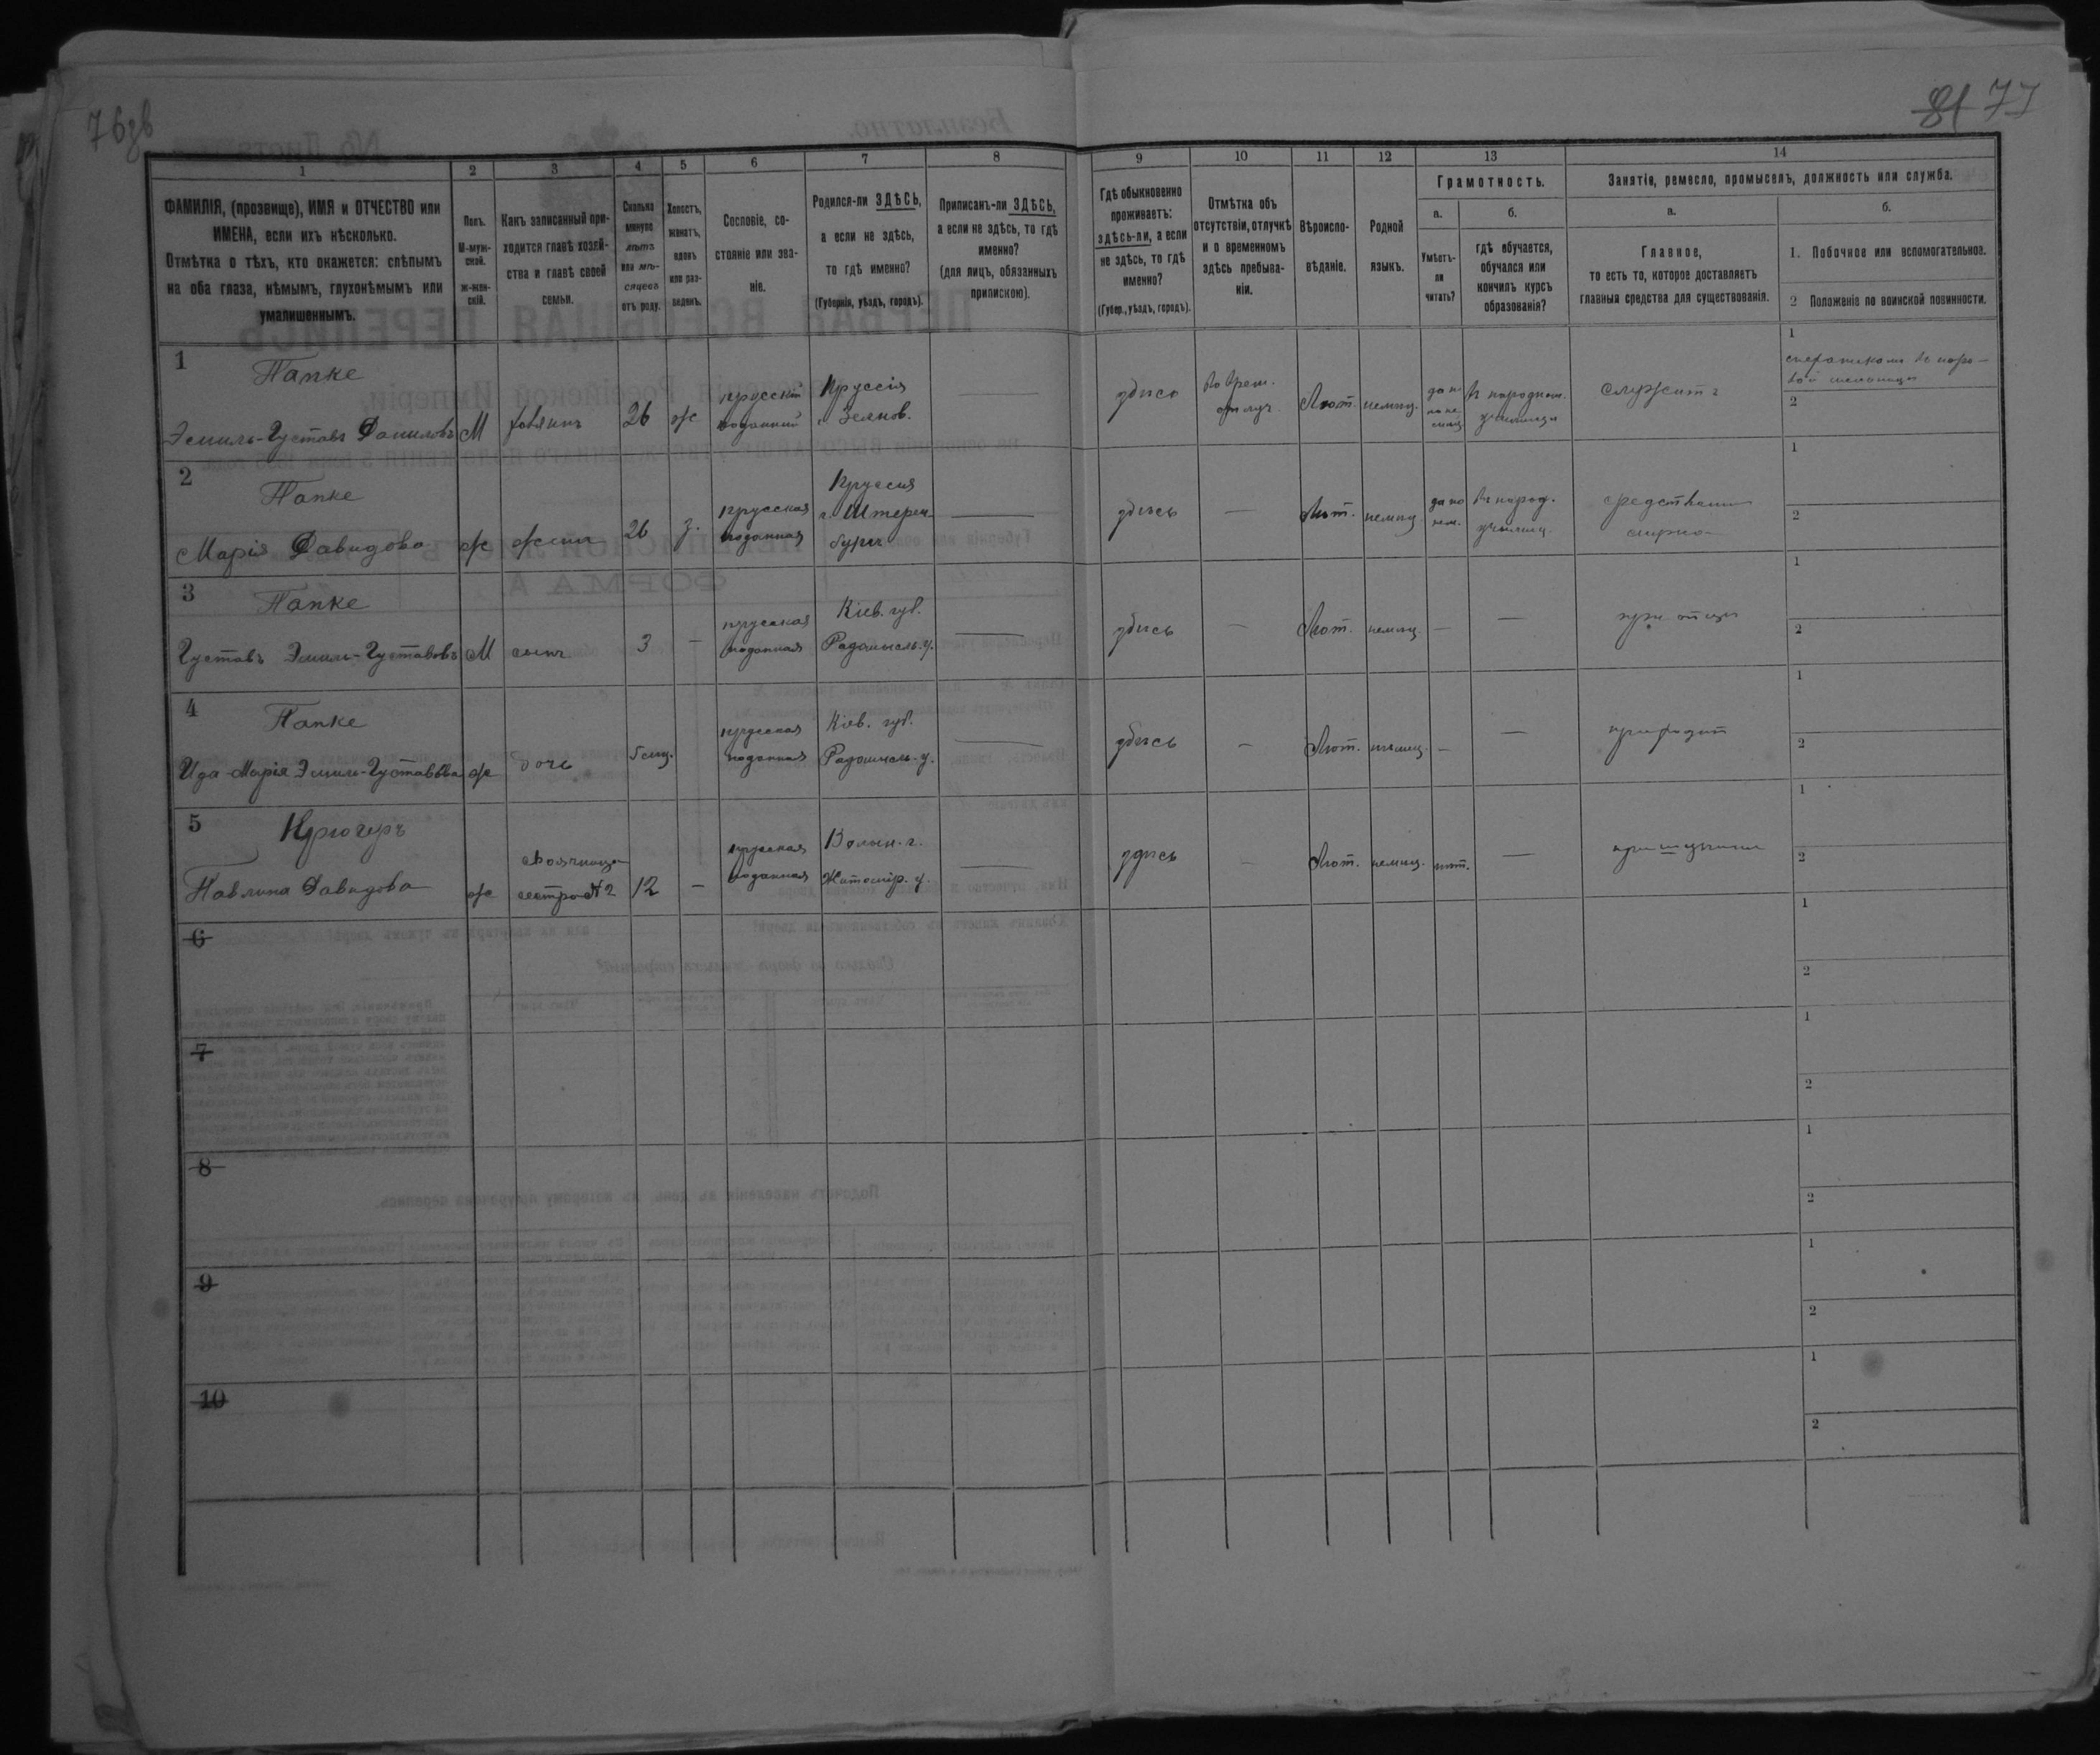 76зв
81 77
1
2
3
4
5
6
7
8
9
10
11
12
13
14
ФАМИЛІЯ, (прозвище), ИМЯ и ОТЧЕСТВО или
ИМЕНА, если ихъ нѣсколько.
Отмѣтка о тѣхъ, кто окажется: слѣпымъ
на оба глаза, нѣмымъ, глухонѣмымъ или
умалишеннымъ.
Полъ.
М-муж-
ской.
ж-жен-
скій.
Какъ записанный при-
ходится главѣ хозяй-
ства и главѣ своей
семьи.
Сколько
минуло
лѣтъ
или мѣ-
сяцевъ
отъ роду.
Холостъ,
женатъ,
вдовъ
или раз-
веденъ.
Сословіе, со-
стояніе или зва-
ніе.
Родился-ли ЗДѢСЬ,
а если не здѣсь,
то гдѣ именно?
(Губернія, уѣздъ, городъ).
Приписанъ-ли ЗДѢСЬ,
а если не здѣсь, то гдѣ
именно?
(для лицъ, обязанныхъ
припискою).
Гдѣ обыкновенно
проживаетъ:
здѣсь-ли, а если
не здѣсь, то гдѣ
именно?
(Губер., уѣздъ, городъ).
Отмѣтка объ
отсутствіи, отлучкѣ
и о временномъ
здѣсь пребыва-
ніи.
Вѣроиспо-
вѣданіе.
Родной
языкъ.
Грамотность.
а.
Умѣетъ-
ли
читать?
б.
гдѣ обучается,
обучался или
кончилъ курсъ
образованія?
Занятіе, ремесло, промыселъ, должность или служба.
а.
Главное,
то есть то, которое доставляетъ
главныя средства для существованія.
б.
1. Побочное или вспомогательное.
2 Положеніе по воинской повинности.
1
Папке
Эмиль-Густавъ Даниловъ
М
хозяинъ
26
ж
прусскій
подданный
Пруссія
здѣсь
во врем.
отлуч.
Лют.
немец.
въ народном.
училищѣ
служитъ
1
2
2
Папке
Марія Давидова
ж
жена
26
з.
прусская
подданная
Пруссія
г. Штерен-
бургъ
—
здѣсь
—
Лют.
немец.
да по
нем.
въ народ.
училищ.
средствами
мужа
1
2
3
Папке
Густавъ Эмиль-Густавовъ
М
сынъ
3
—
прусская
подданная
Кіев. губ.
Радомысль. у.
—
здѣсь
—
Лют.
немец.
—
—
при отцѣ
1
2
4
Папке
Ида-Марія Эмиль-Густавова
ж
дочь
прусская
подданная
Кіев. губ.
Радомысль. у.
—
здѣсь
—
Лют.
немец.
—
—
1
2
5
Крюгеръ
Павлина Давидова
ж
свояченица
сестра №2
12
—
прусская
подданная
Волын. г.
Житомір. у.
—
здѣсь
—
Лют.
немец.
—
1
2
6
1
2
7
1
2
8
1
2
9
1
2
10
1
2